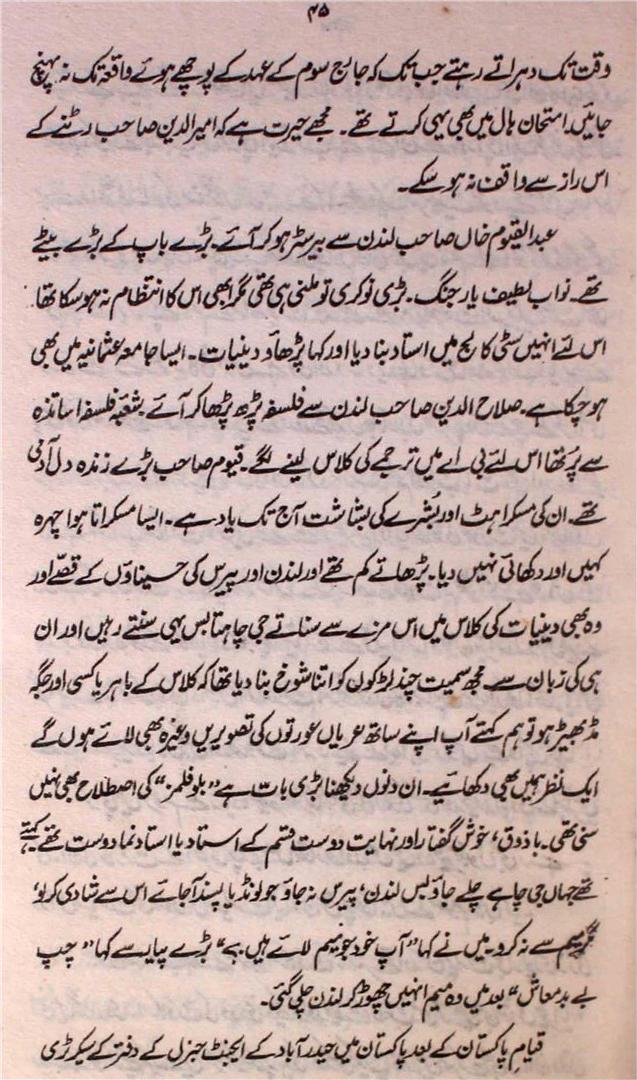 ۴۵
وقت تک دہراتے رہتے جب تک کہ جارج سوم کے عہد کے پوچھے ہوئے واقعہ تک نہ پہنچ
جائیں۔ امتحان ہال میں بھی یہی کرتے تھے۔ مجھے حیرت ہے کہ امیر الدین صاحب رٹنے کے
اس راز سے واقف نہ ہو سکے۔
عبدالقیوم خاں صاحب لندن سے بیرسٹر ہو کر آئے۔ بڑے باپ کے بڑے بیٹے
تھے۔ نواب لطیف یار جنگ۔ بڑی نوکری تو ملنی ہی تھی مگر ابھی اس کا انتظام نہ ہو سکا تھا
اس لئے انہیں سٹی کالج میں استاد بنا دیا اور کہا پڑھاؤ دینیات۔ ایسا جامعہ عثمانیہ میں بھی
ہو چکا ہے۔ صلاح الدین صاحب لندن سے فلسفہ پڑھ پڑھا کر آئے۔ شعبۂ فلسفہ اساتذہ
سے پُر تھا اس لئے بی اے میں ترجمے کی کلاس لینے لگے۔ قیوم صاحب بڑے زندہ دل آدمی
تھے۔ ان کی مسکراہٹ اور بُشرے کی بشاشت آج تک یاد ہے۔ ایسا مسکراتا ہوا چہرہ
کہیں اور دکھائی نہیں دیا۔ پڑھاتے کم تھے اور لندن اور پیرس کی حسیناؤں کے قصّے اور
وہ بھی دینیات کی کلاس میں اس مزے سے سناتے جی چاہتا بس یہی سنتے رہیں اور ان
ہی کی زبان سے۔ مجھ سمیت چند لڑکوں کو اتنا شوخ بنا دیا تھا کہ کلاس کے باہر یا کسی اور جگہ
مڈبھیڑ ہو تو ہم کہتے آپ اپنے ساتھ عریاں عورتوں کی تصویریں وغیرہ بھی لائے ہوں گے
ایک نظر ہمیں بھی دکھائیے۔ ان دنوں دیکھنا بڑی بات ہے "بلو فلمز" کی اصطلاح بھی نہیں
سنی تھی۔ باذوق، خوش گفتار اور نہایت دوست قسم کے استاد یا استاد نما دوست تھے کہتے
تھے جہاں جی چاہے چلے جاؤ بس لندن، پیرس نہ جاؤ جو لونڈیا پسند آجائے اس سے شادی کر لو،
مگر میم سے نہ کرو۔ میں نے کہا "آپ خود جو میم لائے ہیں بے" بڑے پیار سے کہا "چپ
بے بدمعاش" بعد میں وہ میم انہیں چھوڑ کر لندن چلی گئی۔
قیامِ پاکستان کے بعد پاکستان میں حیدرآباد کے ایجنٹ جنرل کے دفتر کے سیکرٹری